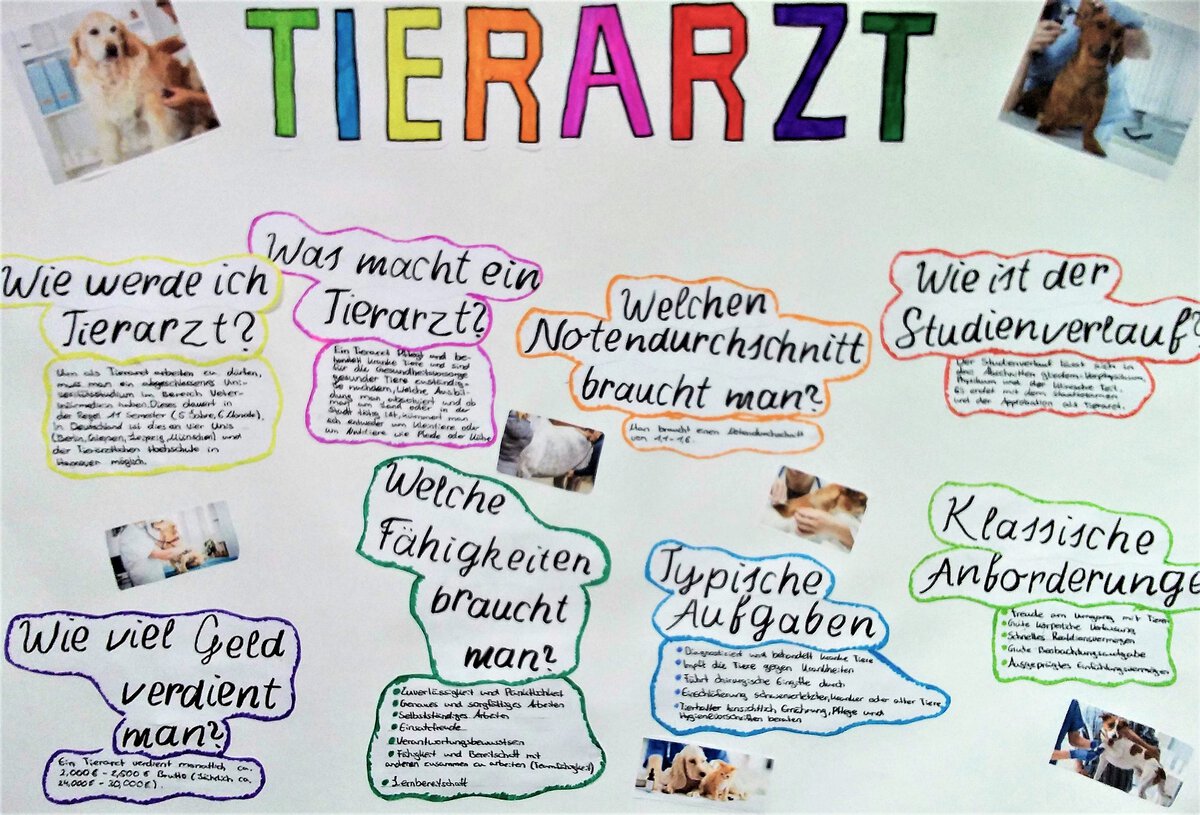 TIERARZT
Wie werde ich
Tierarzt?
Um als Tierarzt arbeiten zu dürfen,
muss man ein abgeschlossenes Uni-
versitätsstudium im Bereich Veter-
inärmedizin haben. Dieses dauert in
der Regel 11 Semester (5 Jahre, 6 Monate).
In Deutschland ist dies an vier Unis
(Berlin, Giessen, Leipzig, München) und
der Tierärztlichen Hochschule in
Hannover möglich.
Was macht ein
Tierarzt?
Ein Tierarzt pflegt und be-
handelt kranke Tiere und sind
für die Gesundheitsvorsorge
gesunder Tiere zuständig.
Je nachdem, welche Ausbil-
dung man absolviert und ob
man am Land oder in der
Stadt tätig ist, kümmert man
sich entweder um Kleintiere oder
um Nutztiere wie Pferde oder Kühe
Welchen
Notendurchschnitt
braucht man?
Man braucht einen Notendurchschnitt
von 1,1 - 1,6.
Wie ist der
Studienverlauf?
Der Studienverlauf lässt sich in
drei Abschnitte gliedern: Vorphysikum,
Physikum und der klinische Teil.
Es endet mit dem Staatsexamen
und der Approbation als Tierarzt.
Welche
Fähigkeiten
braucht
man?
Zuverlässigkeit und Pünktlichkeit
Genaues und sorgfältiges Arbeiten
Selbstständiges Arbeiten
Einsatzfreude
Verantwortungsbewusstsein
Fähigkeit und Bereitschaft mit
anderen zusammen zu arbeiten (Teamfähigkeit)
Lernbereitschaft
Typische
Aufgaben
Diagnostiziert und behandelt kranke Tiere
Impft die Tiere gegen Krankheiten
Führt chirurgische Eingriffe durch
Einschläferung schwerverletzter, kranker oder alter Tiere
Tierhalter hinsichtlich Ernährung, Pflege und
Hygienevorschriften beraten
Klassische
Anforderunge
Freude am Umgang mit Tieren
Gute körperliche Verfassung
Schnelles Reaktionsvermögen
Gute Beobachtungsaufgabe
Ausgeprägtes Einfühlungsvermögen
Wie viel Geld
verdient
man?
Ein Tierarzt verdient monatlich ca.
2,000 € - 2,500 € Brutto (Jährlich ca.
24,000 € - 30,000 €).